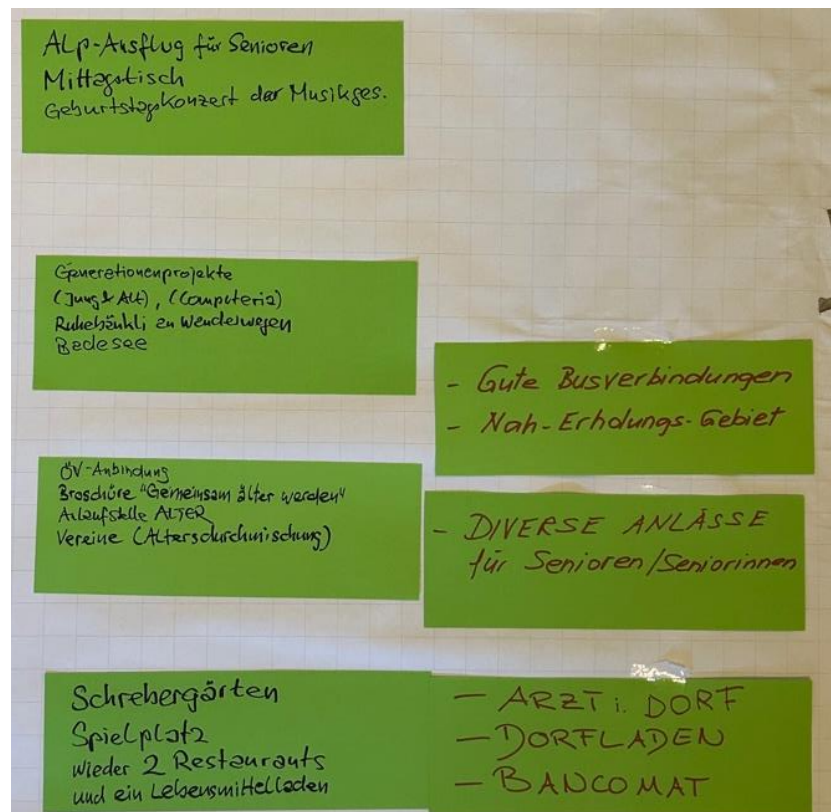 Alp-Ausflug für Senioren
Mittagstisch
Geburtstagskonzert der Musikges.
Generationenprojekte
(Jung & Alt), (Computeria)
Ruhebänkli an Wanderwegen
Badesee
ÖV-Anbindung
Broschüre "Gemeinsam älter werden"
Anlaufstelle ALTER
Vereine (Altersdurchmischung)
Schrebergärten
Spielplatz
wieder 2 Restaurants
und ein Lebensmittelladen
- Gute Busverbindungen
- Nah-Erholungs-Gebiet
- DIVERSE ANLÄSSE
für Senioren/Seniorinnen
- ARZT i. DORF
- DORFLADEN
- BANCOMAT